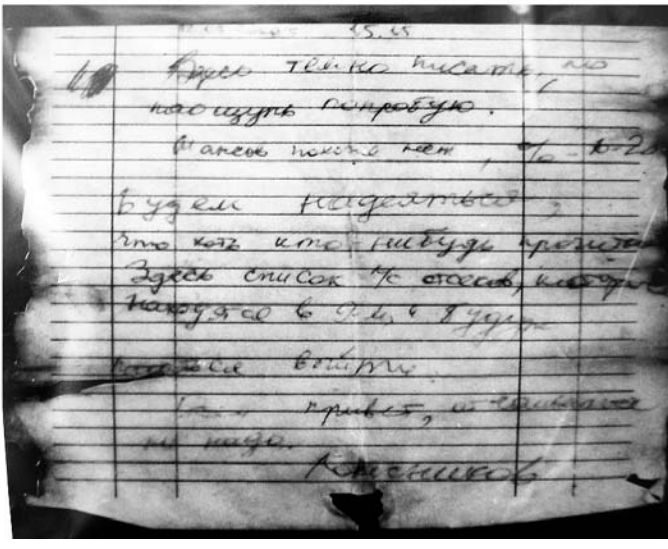 Здесь темно писать, но
наощупь попробую.
Шансов похоже нет, % 10-20
Будем надеяться,
что хоть кто-нибудь прочитает
Здесь список л/с отсеков, которые
находятся в 9-м и будут
выйти.
привет, отчаиваться
не надо.
Колесников